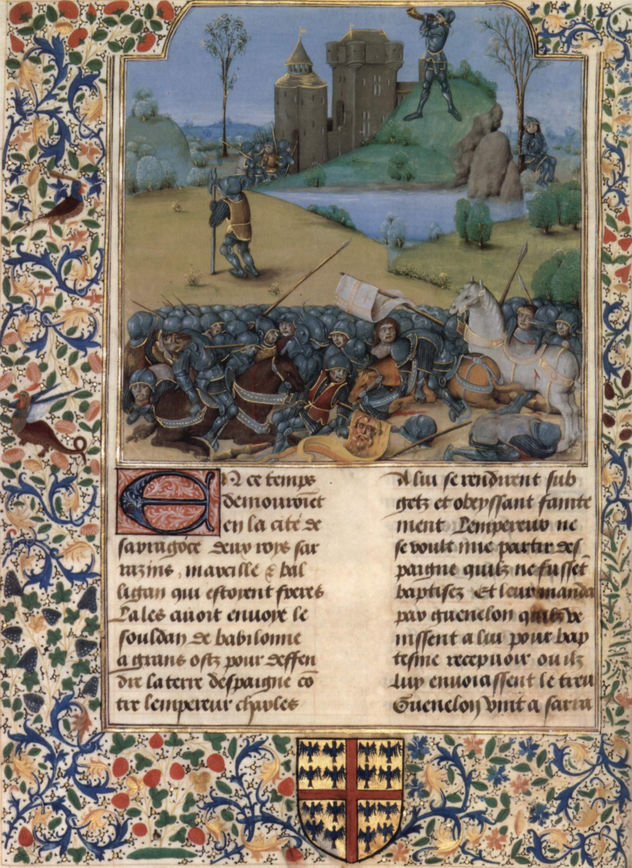 En ce temps
demouroiēt
en la cite de
sarragoce deux roys sar
razins, marcille & bal
ligan qui estoyent freres
Lales auoit enuoye le
souldan de babilonne
a grans ostz pour deffen
dre la terre despaigne cō
tre lempereur charles
A lui se rendirent sub
getz et obeyssant faincte
ment Lempereur ne
se voult mie partir des
paigne quilz ne fussēt
baptisez Et leur manda
par guenelon quilz ve
nissent a lui pour bap
tesme recepuoir ou ilz
luy enuoiassent le treu
Guenelon vint a sarra